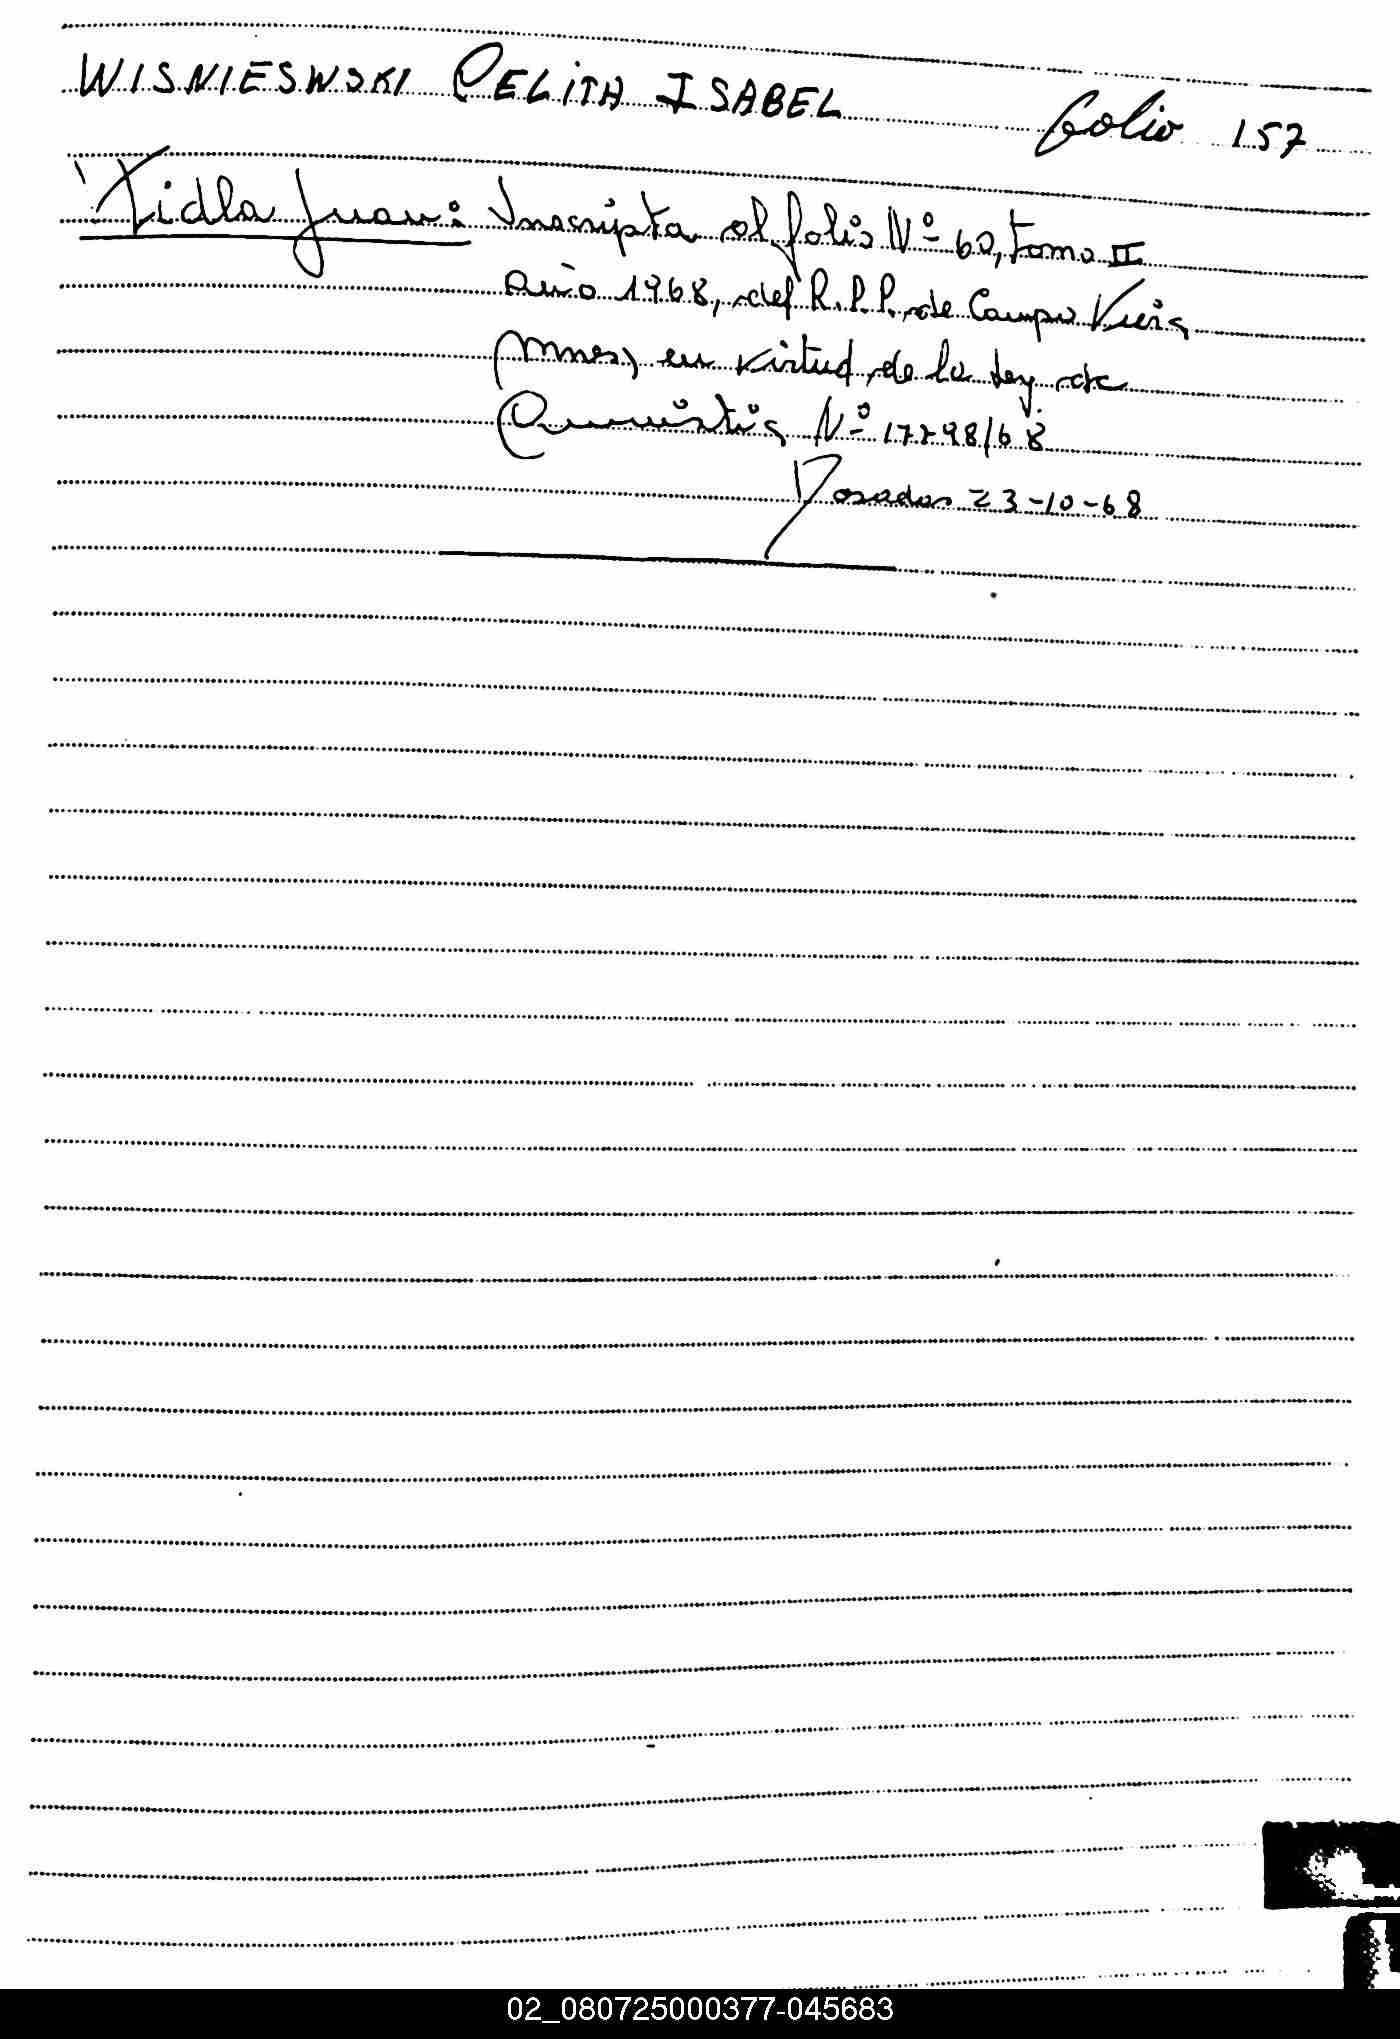 WISNIESWSKI CELITA ISABEL folio 157
Zidla Juan: Inscripta al folio Nº 60, tomo II
Año 1968, del R.P.P. de Campo Viera
(Mnes) en virtud de la Ley de
Amnistia Nº 17298/68
Posadas 23-10-68
02_080725000377-045683